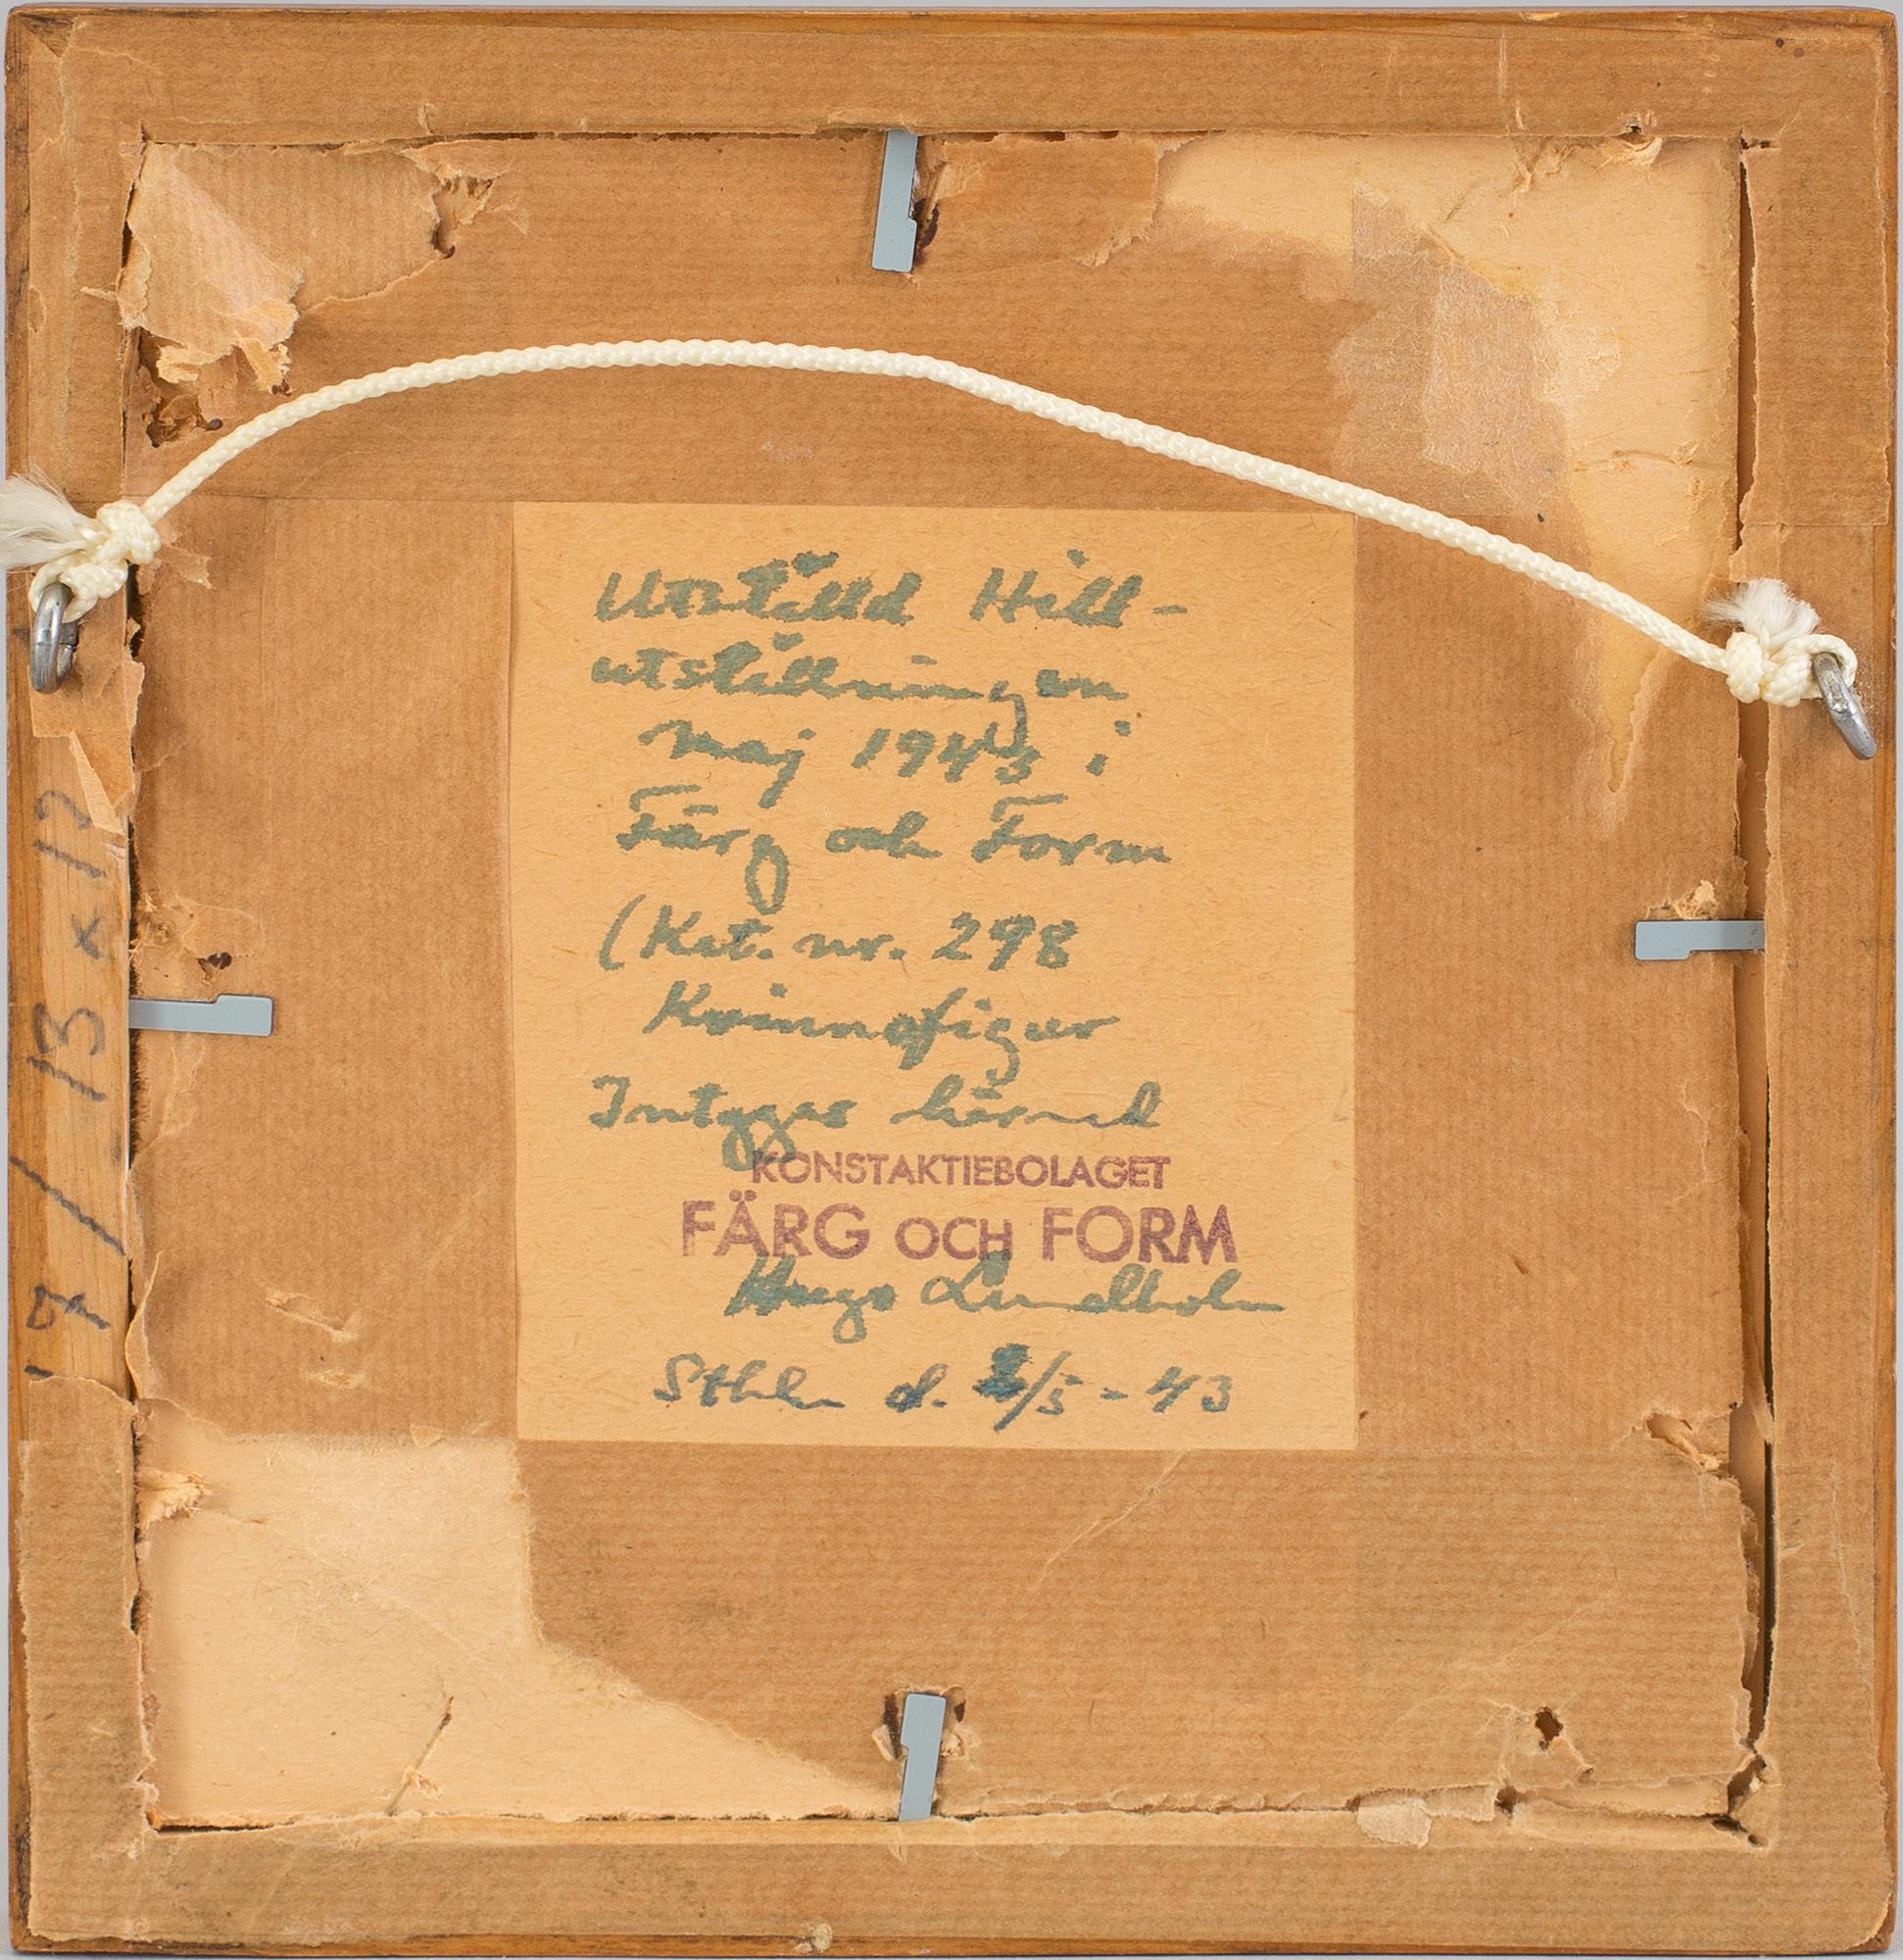 Utställd Hill-
utställningen
maj 1943 i
Färg och Form
(Kat. nr. 298
Kvinnofigur
Intygas härmed
KONSTAKTIEBOLAGET
FÄRG OCH FORM
Hugo Lindholm
Sthlm d. /5 - 43
13 x 13